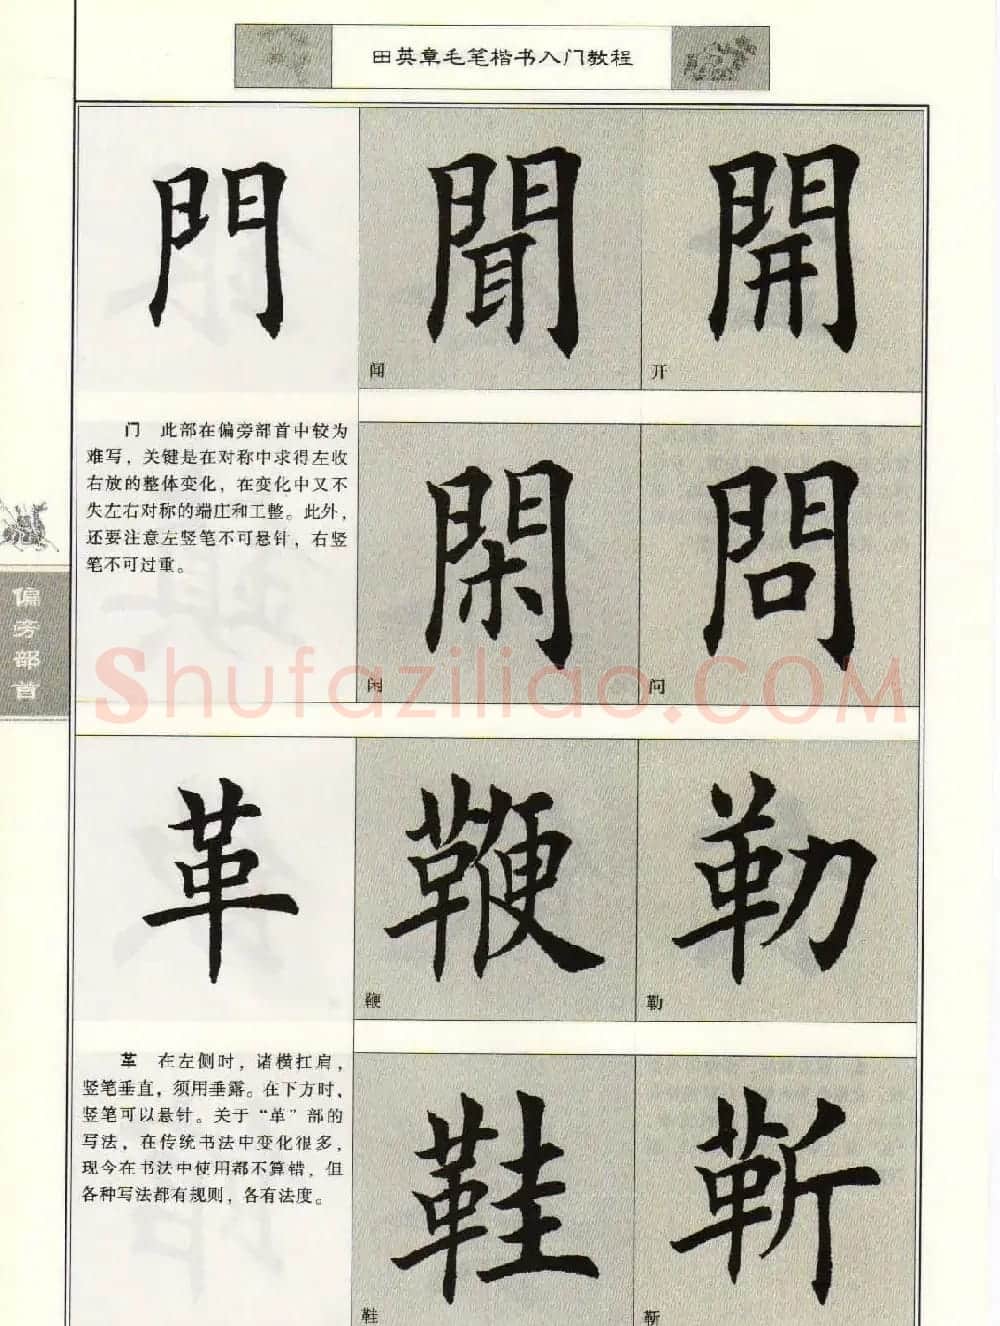 田英章毛笔楷书入门教程
門 聞 開
闻 开
门 此部在偏旁部首中较为
难写，关键是在对称中求得左收
右放的整体变化，在变化中又不
失左右对称的端庄和工整。此外，
还要注意左竖笔不可悬针，右竖
笔不可过重。
閑 問
闲 问
偏旁部首
Shufaziliao.COM
革 鞭 勒
鞭 勒
革 在左侧时，诸横扛肩，
竖笔垂直，须用垂露。在下方时，
竖笔可以悬针。关于“革”部的
写法，在传统书法中变化很多，
现今在书法中使用都不算错，但
各种写法都有规则，各有法度。
鞋 靳
鞋 靳